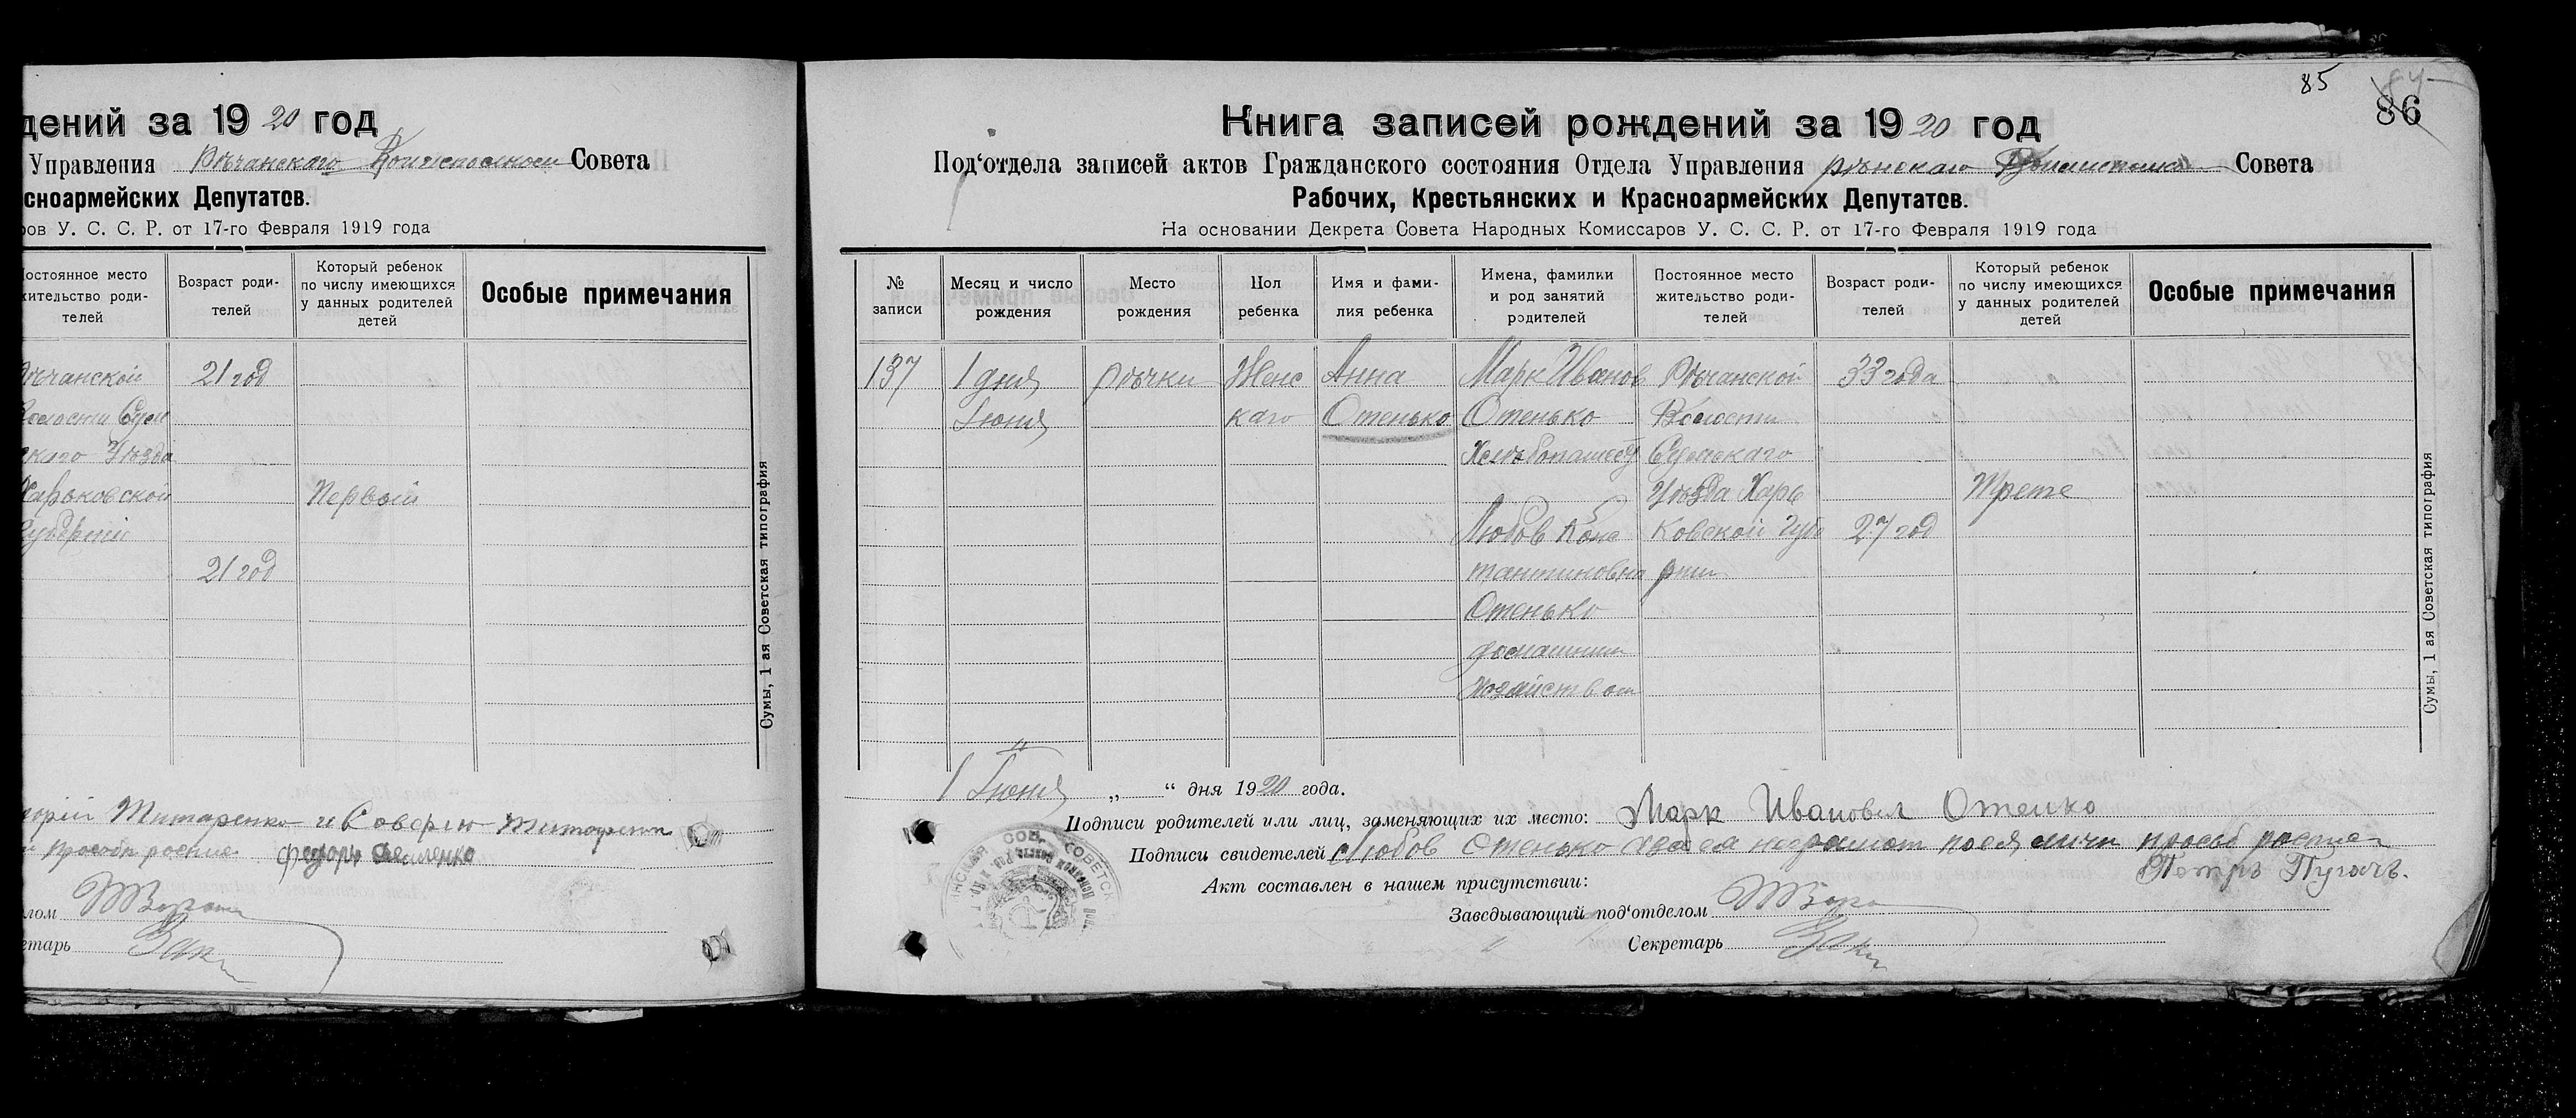 дений за 1920 год
Управления Рѣчанского Совета
сноармейских Депутатов.
ров У. С. С. Р. от 17-го Февраля 1919 года
постоянное место жительство родителей
Возраст родителей
Который ребенок по числу имеющихся у данных родителей детей
Особые примечания
Рѣчанской 21 год
Волости Сум
ского Уѣзда
Харьковской Первый
Губерніи
21 год
Сумы, 1 ая Советская типография
Титаренко
Федоръ
лом
етарь
85
86
Книга записей рождений за 1920 год
Под‘отдела записей актов Гражданского состояния Отдела Управления Совета
Рабочих, Крестьянских и Красноармейских Депутатов.
На основании Декрета Совета Народных Комиссаров У. С. С. Р. от 17-го Февраля 1919 года
№ записи
Месяц и число рождения
Место рождения
Пол ребенка
Имя и фами-лия ребенка
Имена, фамилии и род занятий родителей
Постоянное место жительство роди-телей
Возраст роди-телей
Который ребенок по числу имеющихся у данных родителей детей
Особые примечания
137 1 дня Рѣчки Женс Анна Марк Иванов Рѣчанской 33 года
Іюня каго Отенько Отенько Волости
Хлѣбопашец Сумскаго
Уѣзда Харь Трете
Любов Конс ковской Губе 27 год
тантиновна рнии
Отенько
домашним
хозяйством
Сумы, 1 ая Советская типография
1 Іюня „ “ дня 1920 года.
Подписи родителей или лиц, заменяющих их место: Марк Иванович Отенко
Подписи свидетелей Любов Отенько
Петръ Пугачъ.
Акт составлен в нашем присутствии:
Заведывающий под‘отделом
Секретарь